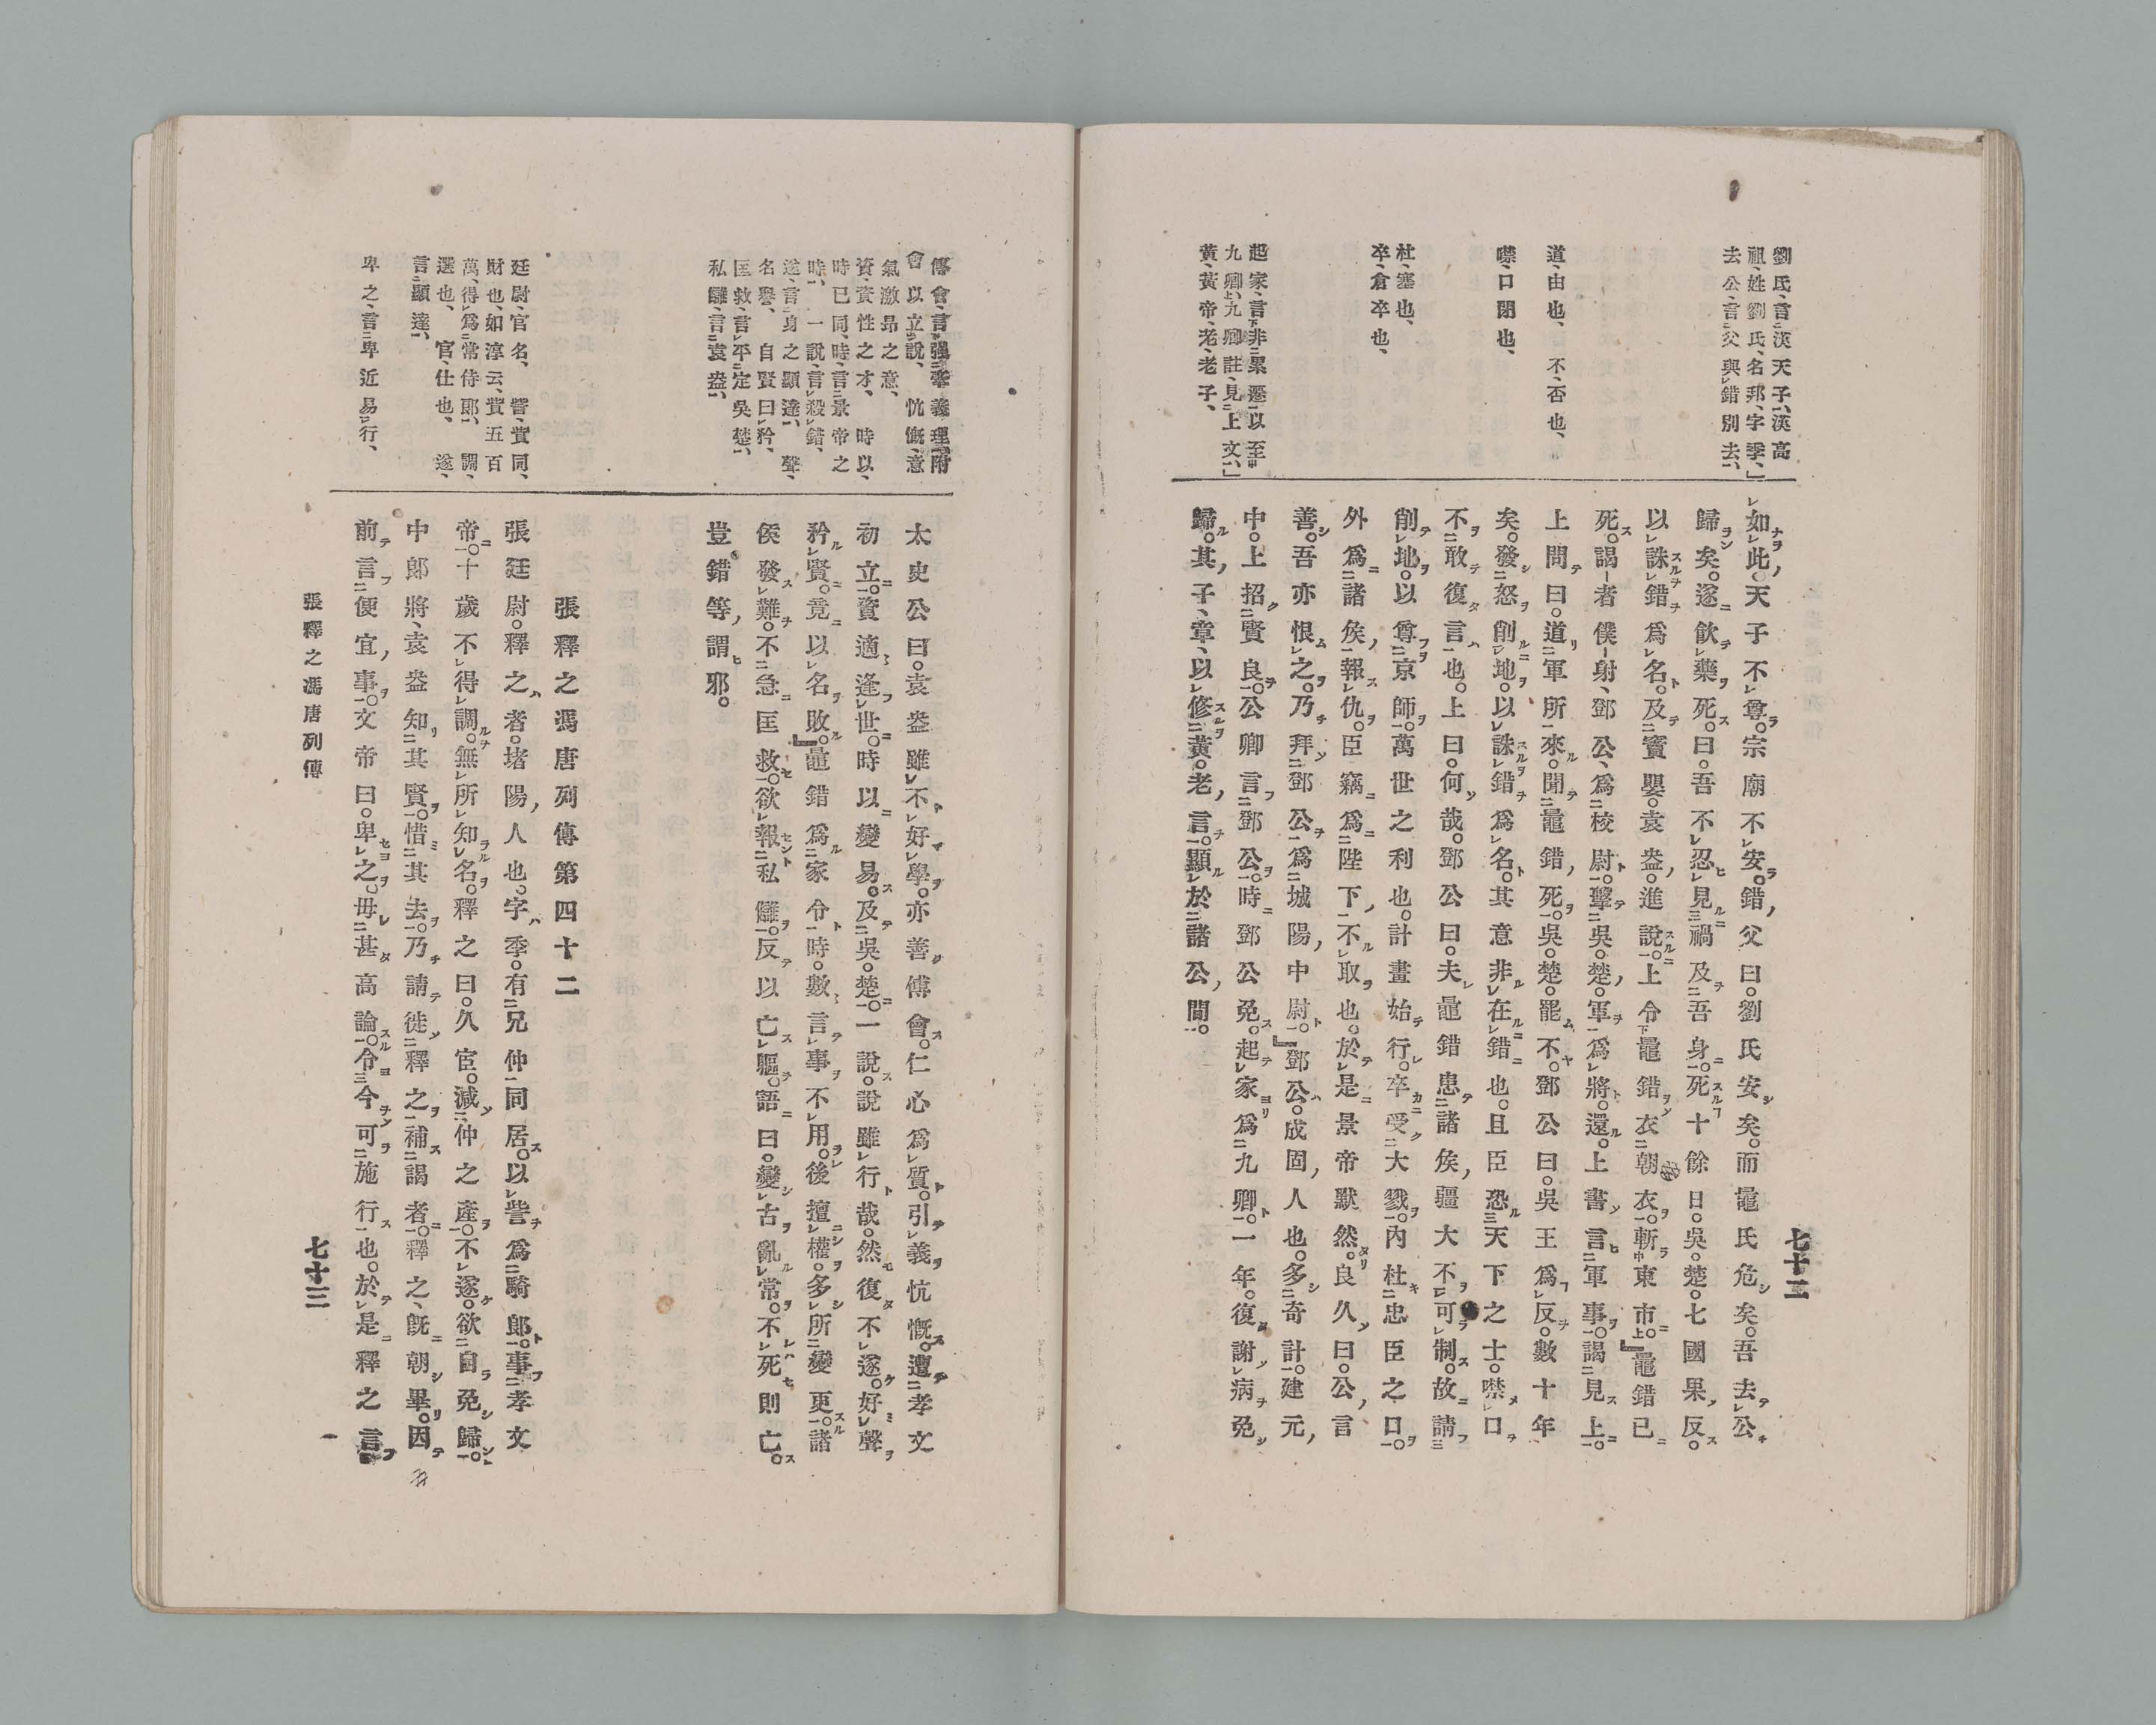 劉氏、言漢天子、漢高
祖、姓劉氏、名邦、字季、」
去公、言父與錯別去、
道、由也、不、否也、
噤、口閉也、
杜、塞也、
卒、倉卒也、
起家、言非累遷以至
九卿、九卿註、見上文、」
黃、黃帝、老、老子、
如此。天子不尊。宗廟不安。錯父曰。劉氏安矣。而鼂氏危矣。吾去公
歸矣。遂飮藥死。曰。吾不忍見禍及吾身。死十餘日。吳。楚。七國果反。
以誅錯爲名。及竇嬰。袁盎。進說。上令鼂錯衣朝衣。斬東市。』鼂錯已
死。謁者僕射、鄧公、爲校尉。擊吳。楚。軍爲將。還。上書言軍事。謁見上。
上問曰。道軍所來。聞鼂錯死。吳。楚。罷不。鄧公曰。吳王爲反。數十年
矣。發怒削地。以誅錯爲名。其意非在錯也。且臣恐天下之士。噤口
不敢復言也。上曰。何哉。鄧公曰。夫鼂錯患諸侯疆大不可制。故請
削地。以尊京師。萬世之利也。計畫始行。卒受大戮。內杜忠臣之口。
外爲諸侯報仇。臣竊爲陛下不取也。於是景帝默然。良久曰。公言
善。吾亦恨之。乃拜鄧公爲城陽中尉。』鄧公。成固人也。多奇計。建元
中。上招賢良。公卿言鄧公。時鄧公免。起家爲九卿。一年。復謝病免
歸。其子、章、以修黃。老言。顯於諸公間。
七十二
傅會、言强牽義理附
會以立說、忼慨、意
氣激昂之意、
資、資性之才、時以、
時已同、時、言景帝之
時、一說、言殺錯、
遂、言身之顯達、聲、
名譽、自賢曰矜、
匡救、言平定吳楚、
私讎、言袁盎、
廷尉、官名、訾、貲同、
財也、如淳云、貲五百
萬、得爲常侍郞、調、
選也、官、仕也、遂、
言顯達、
卑之、言卑近易行、
太史公曰。袁盎雖不好學。亦善傅會。仁心爲質。引義忼慨。遭孝文
初立。資適逢世。時以變易。及吳。楚。一說。說雖行哉。然復不遂。好聲
矜賢。竟以名敗。』鼂錯爲家令時。數言事不用。後擅權。多所變更。諸
侯發難。不急匡救。欲報私讎。反以亡軀。語曰。變古亂常。不死則亡。
豈錯等謂邪。
張釋之馮唐列傳第四十二
張廷尉。釋之者。堵陽人也。字季。有兄仲同居。以訾爲騎郞。事孝文
帝。十歲不得調。無所知名。釋之曰。久宦。減仲之產。不遂。欲自免歸。
中郞將、袁盎知其賢。惜其去。乃請徙釋之補謁者。釋之、旣朝畢。因
前言便宜事。文帝曰。卑之。毋甚高論。令今可施行也。於是釋之言
張釋之馮唐列傳
七十三